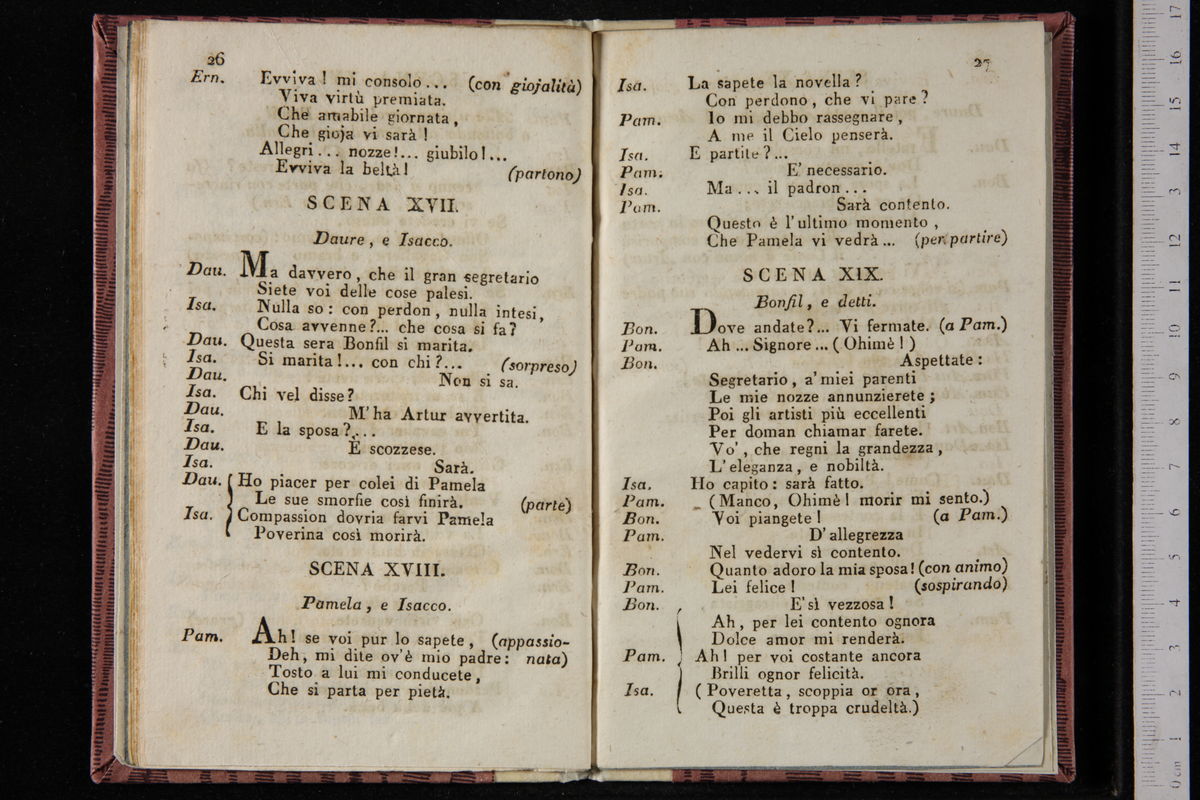 26
Ern. Evviva! mi consolo... (con giojalità)
Viva virtù premiata.
Che amabile giornata,
Che gioja vi sarà!
Allegri... nozze!... giubilo!...
Evviva la beltà! (partono)
SCENA XVII.
Daure, e Isacco.
Dau. Ma davvero, che il gran segretario
Siete voi delle cose palesi.
Isa. Nulla so: con perdon, nulla intesi,
Cosa avvenne?... che cosa si fa?
Dau. Questa sera Bonfil si marita.
Isa. Si marita!... con chi?... (sorpreso)
Dau. Non si sa.
Isa. Chi vel disse?
Dau. M'ha Artur avvertita.
Isa. E la sposa?...
Dau. È scozzese.
Isa. Sarà.
Dau. Ho piacer per colei di Pamela
Le sue smorfie così finirà. (parte)
Isa. Compassion dovria farvi Pamela
Poverina così morirà.
SCENA XVIII.
Pamela, e Isacco.
Pam. Ah! se voi pur lo sapete, (appassio-
Deh, mi dite ov'è mio padre: nata)
Tosto a lui mi conducete,
Che si parta per pietà.
27
Isa. La sapete la novella?
Con perdono, che vi pare?
Pam. Io mi debbo rassegnare,
A me il Cielo penserà.
Isa. E partite?...
Pam. E' necessario.
Isa. Ma... il padron...
Pam. Sarà contento.
Questo è l'ultimo momento,
Che Pamela vi vedrà... (per partire)
SCENA XIX.
Bonfil, e detti.
Bon. Dove andate?... Vi fermate. (a Pam.)
Pam. Ah... Signore... (Ohimè!)
Bon. Aspettate:
Segretario, a' miei parenti
Le mie nozze annunzierete;
Poi gli artisti più eccellenti
Per doman chiamar farete.
Vo', che regni la grandezza,
L'eleganza, e nobiltà.
Isa. Ho capito: sarà fatto.
Pam. (Manco, Ohimè! morir mi sento.)
Bon. Voi piangete! (a Pam.)
Pam. D'allegrezza
Nel vedervi sì contento.
Bon. Quanto adoro la mia sposa! (con animo)
Pam. Lei felice! (sospirando)
Bon. E' sì vezzosa!
Ah, per lei contento ognora
Dolce amor mi renderà.
Pam. Ah! per voi costante ancora
Brilli ognor felicità.
Isa. (Poveretta, scoppia or ora,
Questa è troppa crudeltà.)
0 cm 1 2 3 4 5 6 7 8 9 10 11 12 13 14 15 16 17